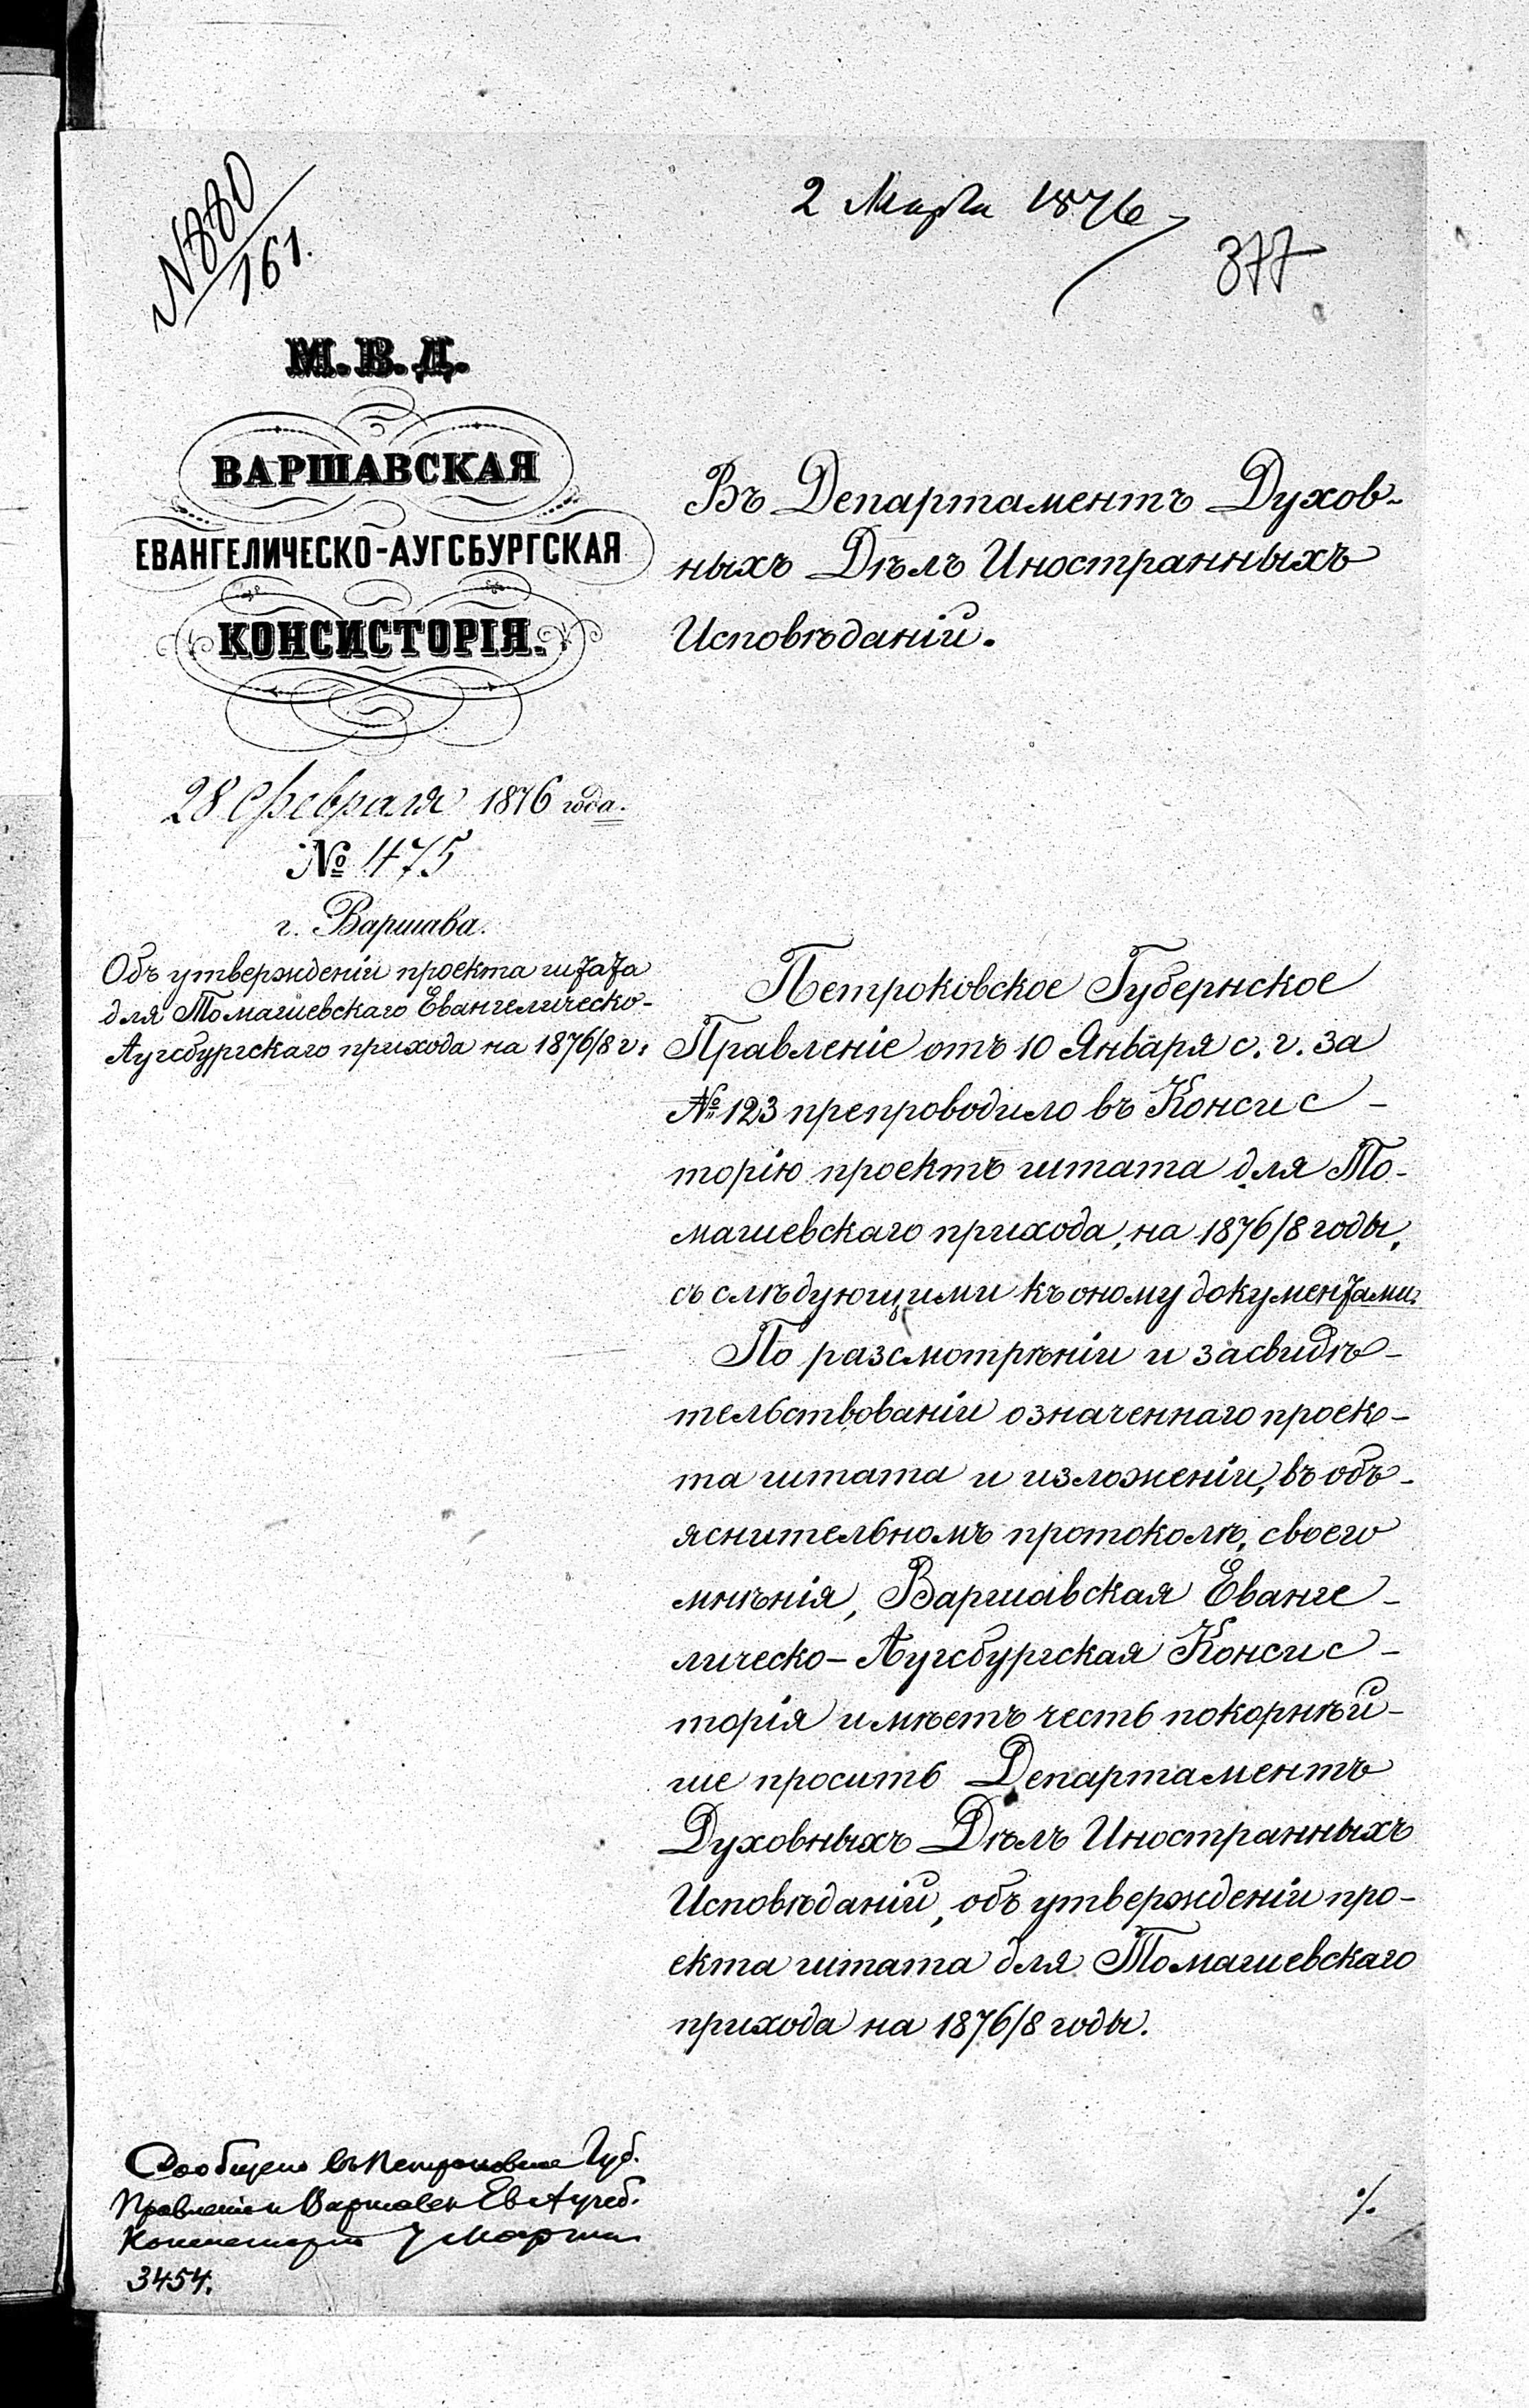 № 880
161.
2 Марта 1876
377
М.В.Д.
ВАРШАВСКАЯ
ЕВАНГЕЛИЧЕСКО-АУГСБУРГСКАЯ
КОНСИСТОРІЯ.
28 Февраля 1876 года.
№ 475
г. Варшава.
Объ утвержденіи проекта штата
для Томашевскаго Евангелическо-
Аугсбургскаго прихода на 1876/8 г.
Въ Департаментъ Духов-
ныхъ Дѣлъ Иностранныхъ
Исповѣданій.
Петроковское Губернское
Правленіе отъ 10 Января с. г. за
№ 123 препроводило въ Консис-
торію проектъ штата для То-
машевскаго прихода, на 1876/8 годы,
съ слѣдующими къ оному документами.
По разсмотрѣніи и засвидѣ-
тельствованіи означеннаго проек-
та штата и изложеніи, въ объ-
яснительномъ протоколѣ, своего
мнѣнія, Варшавская Еванге-
лическо-Аугсбургская Консис-
торія имѣетъ честь покорнѣй-
ше просить Департаментъ
Духовныхъ Дѣлъ Иностранныхъ
Исповѣданій, объ утвержденіи про-
екта штата для Томашевскаго
прихода на 1876/8 годы.
Сообщено въ Петроковское Губ.
Правленіе и Варшавск Ев Аугсб.
Консисторію 7 Марта
3454.
%